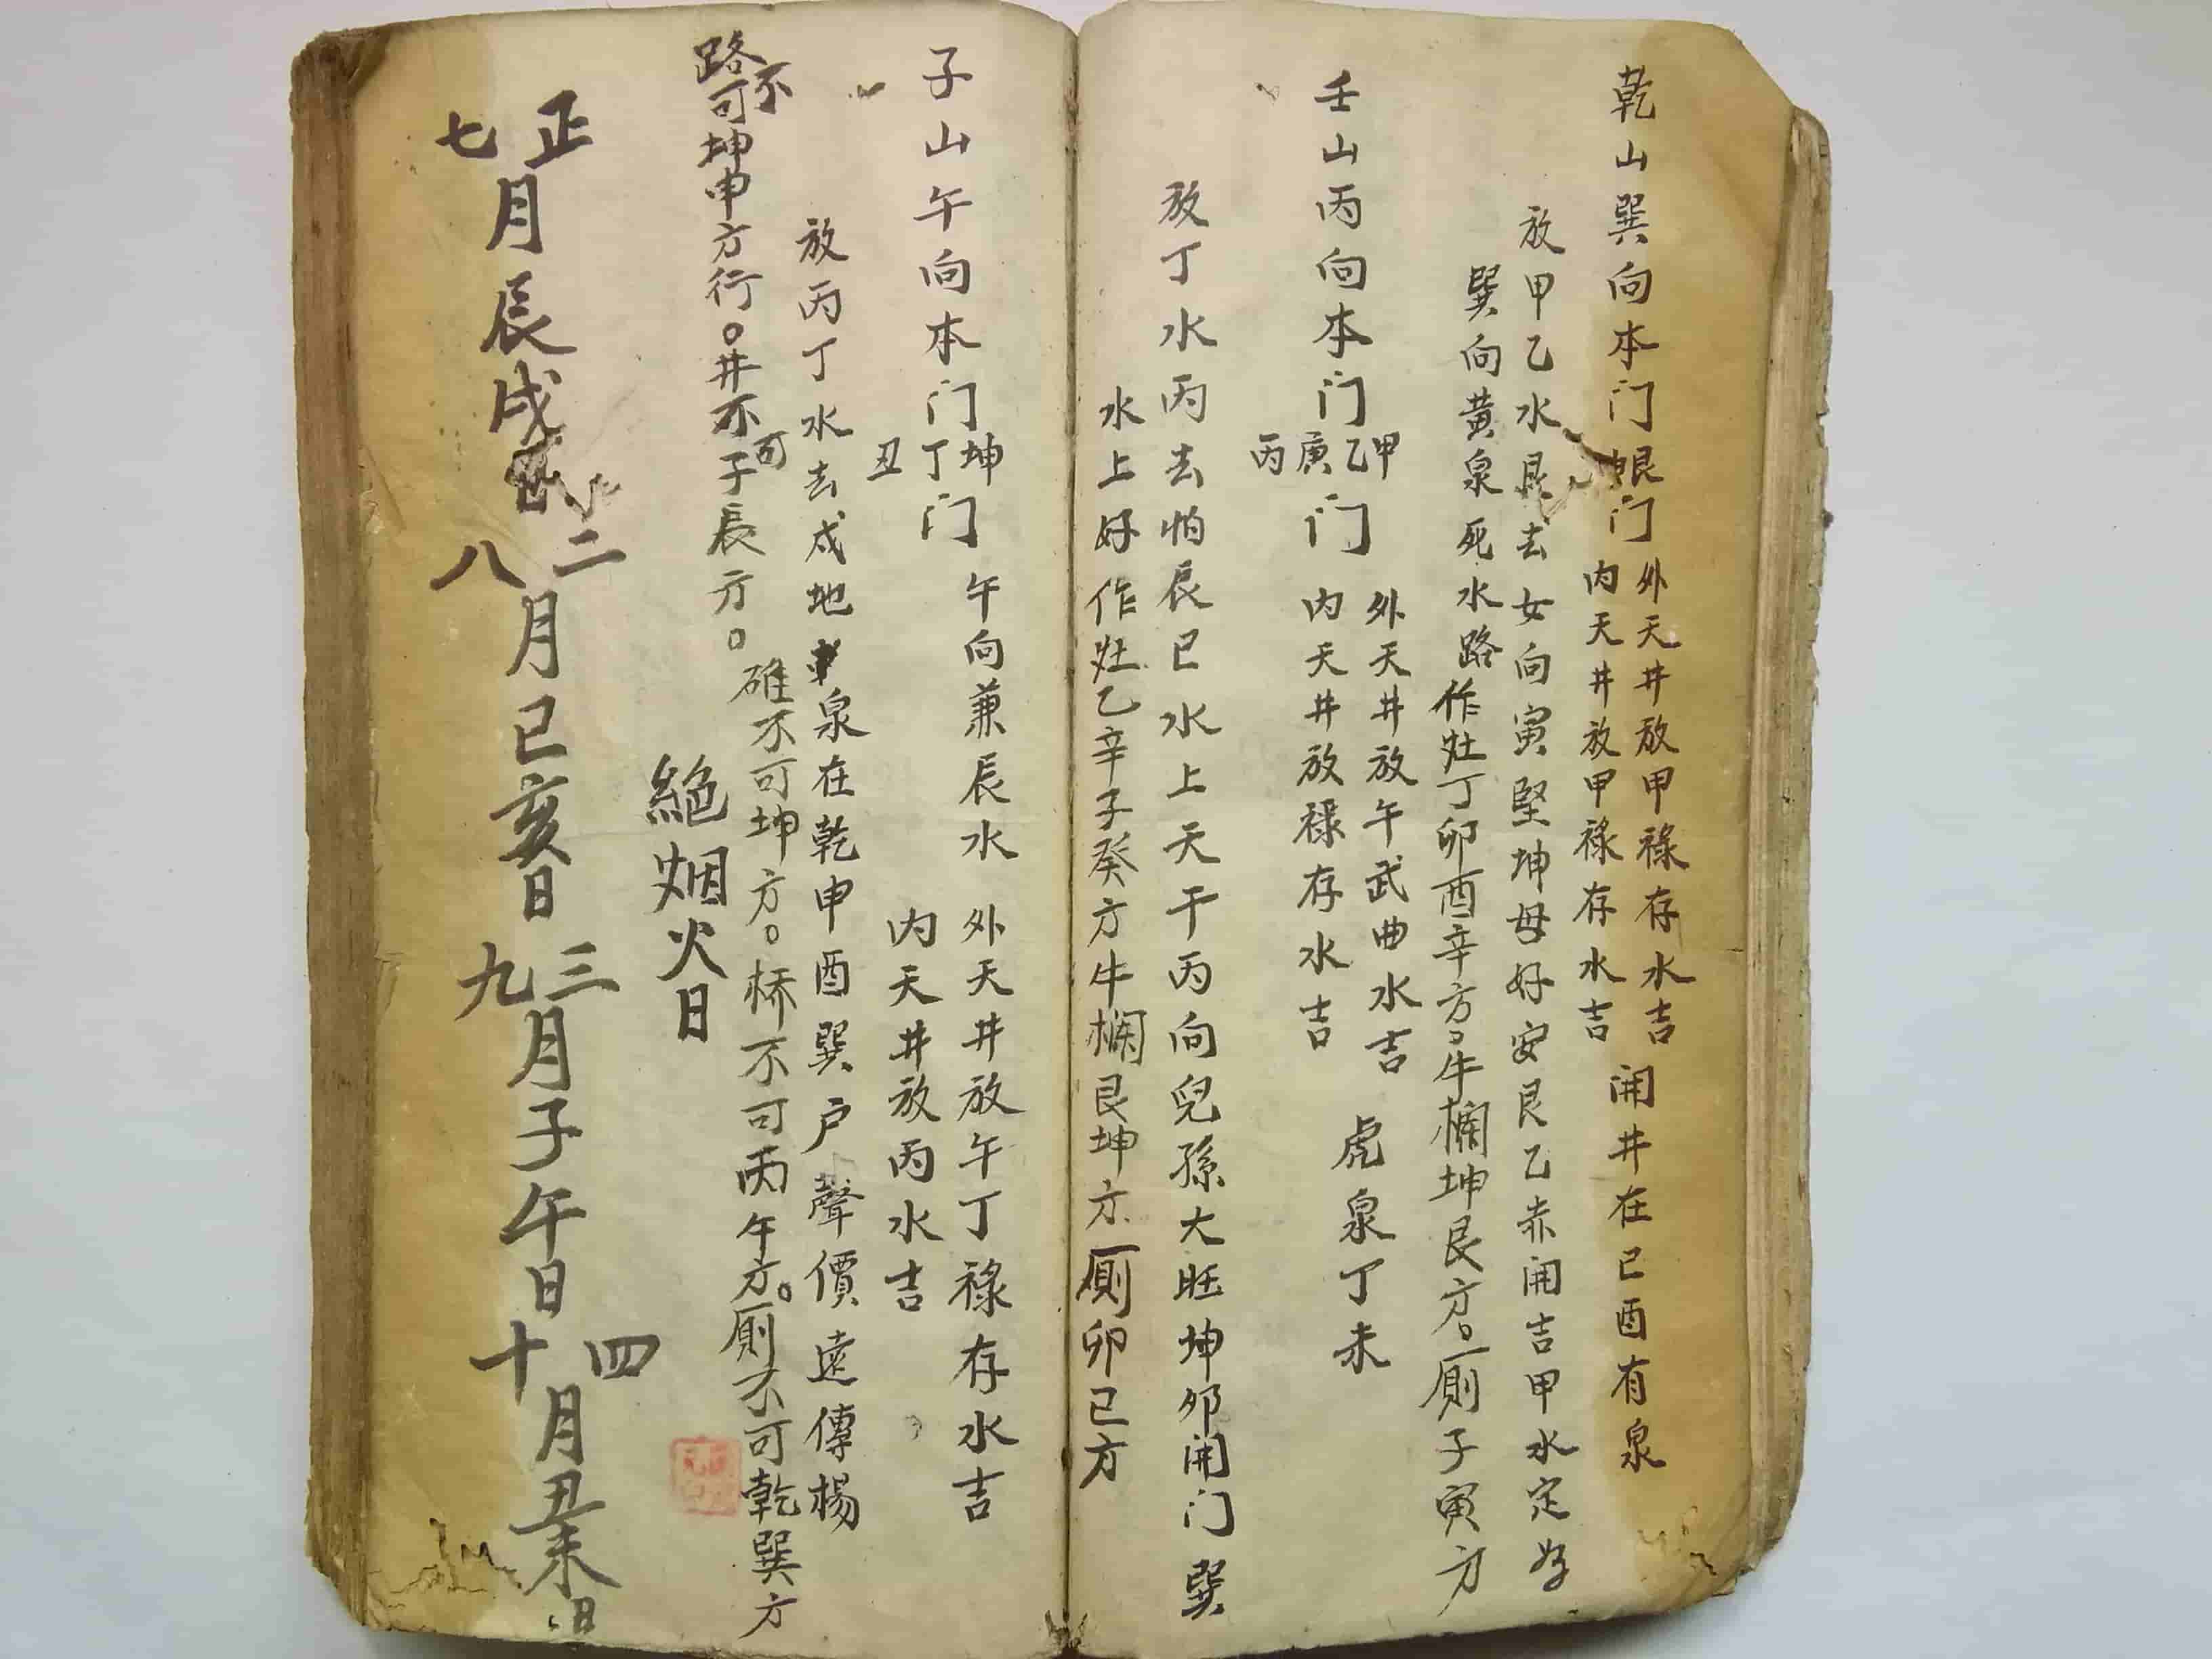 乾山巽向本门艮门
外天井放甲禄存水吉
内天井放甲禄存水吉
開井在巳酉有泉
放甲乙水艮去女向寅堅坤母好安艮乙赤開吉甲水定好
巽向黄泉死水路
作灶丁卯酉辛方牛欄坤艮方。厠子寅方
壬山丙向本门
甲乙庚丙
门
外天井放午武曲水吉
内天井放禄存水吉
虎泉丁未
放丁水丙去怕辰巳水上天干丙向兒孫大旺坤卯開门巽
水上好作灶乙辛子癸方牛欄艮坤方厠卯巳方
子山午向本门
坤丁丑
门
午向兼辰水
外天井放午丁禄存水吉
内天井放丙水吉
放丙丁水去戌地泉在乾申酉巽户聲價遠傳楊
碓不可坤方。桥不可丙午方。厠不可乾巽方
路不可坤申方行。井不可子辰方。
絕烟火日
正七月辰戌日
二八月巳亥日
三九月子午日
四十月丑未日